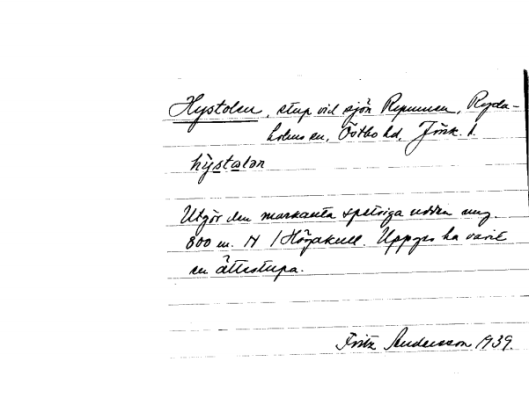 Hystolen, stup vid sjön Rymmen, Ryda-
holms sn, Östbo hd, Jönk. l.
hýstolən
Utgör den markanta spetsiga udden ung.
800 m. N / Högakull. Uppges ha varit
en ättestupa.
Fritz Andersson 1939.